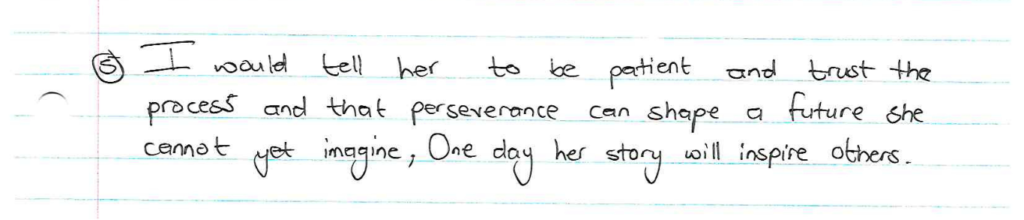 ⑤ I would tell her to be patient and trust the
process and that perseverance can shape a future she
cannot yet imagine, One day her story will inspire others.